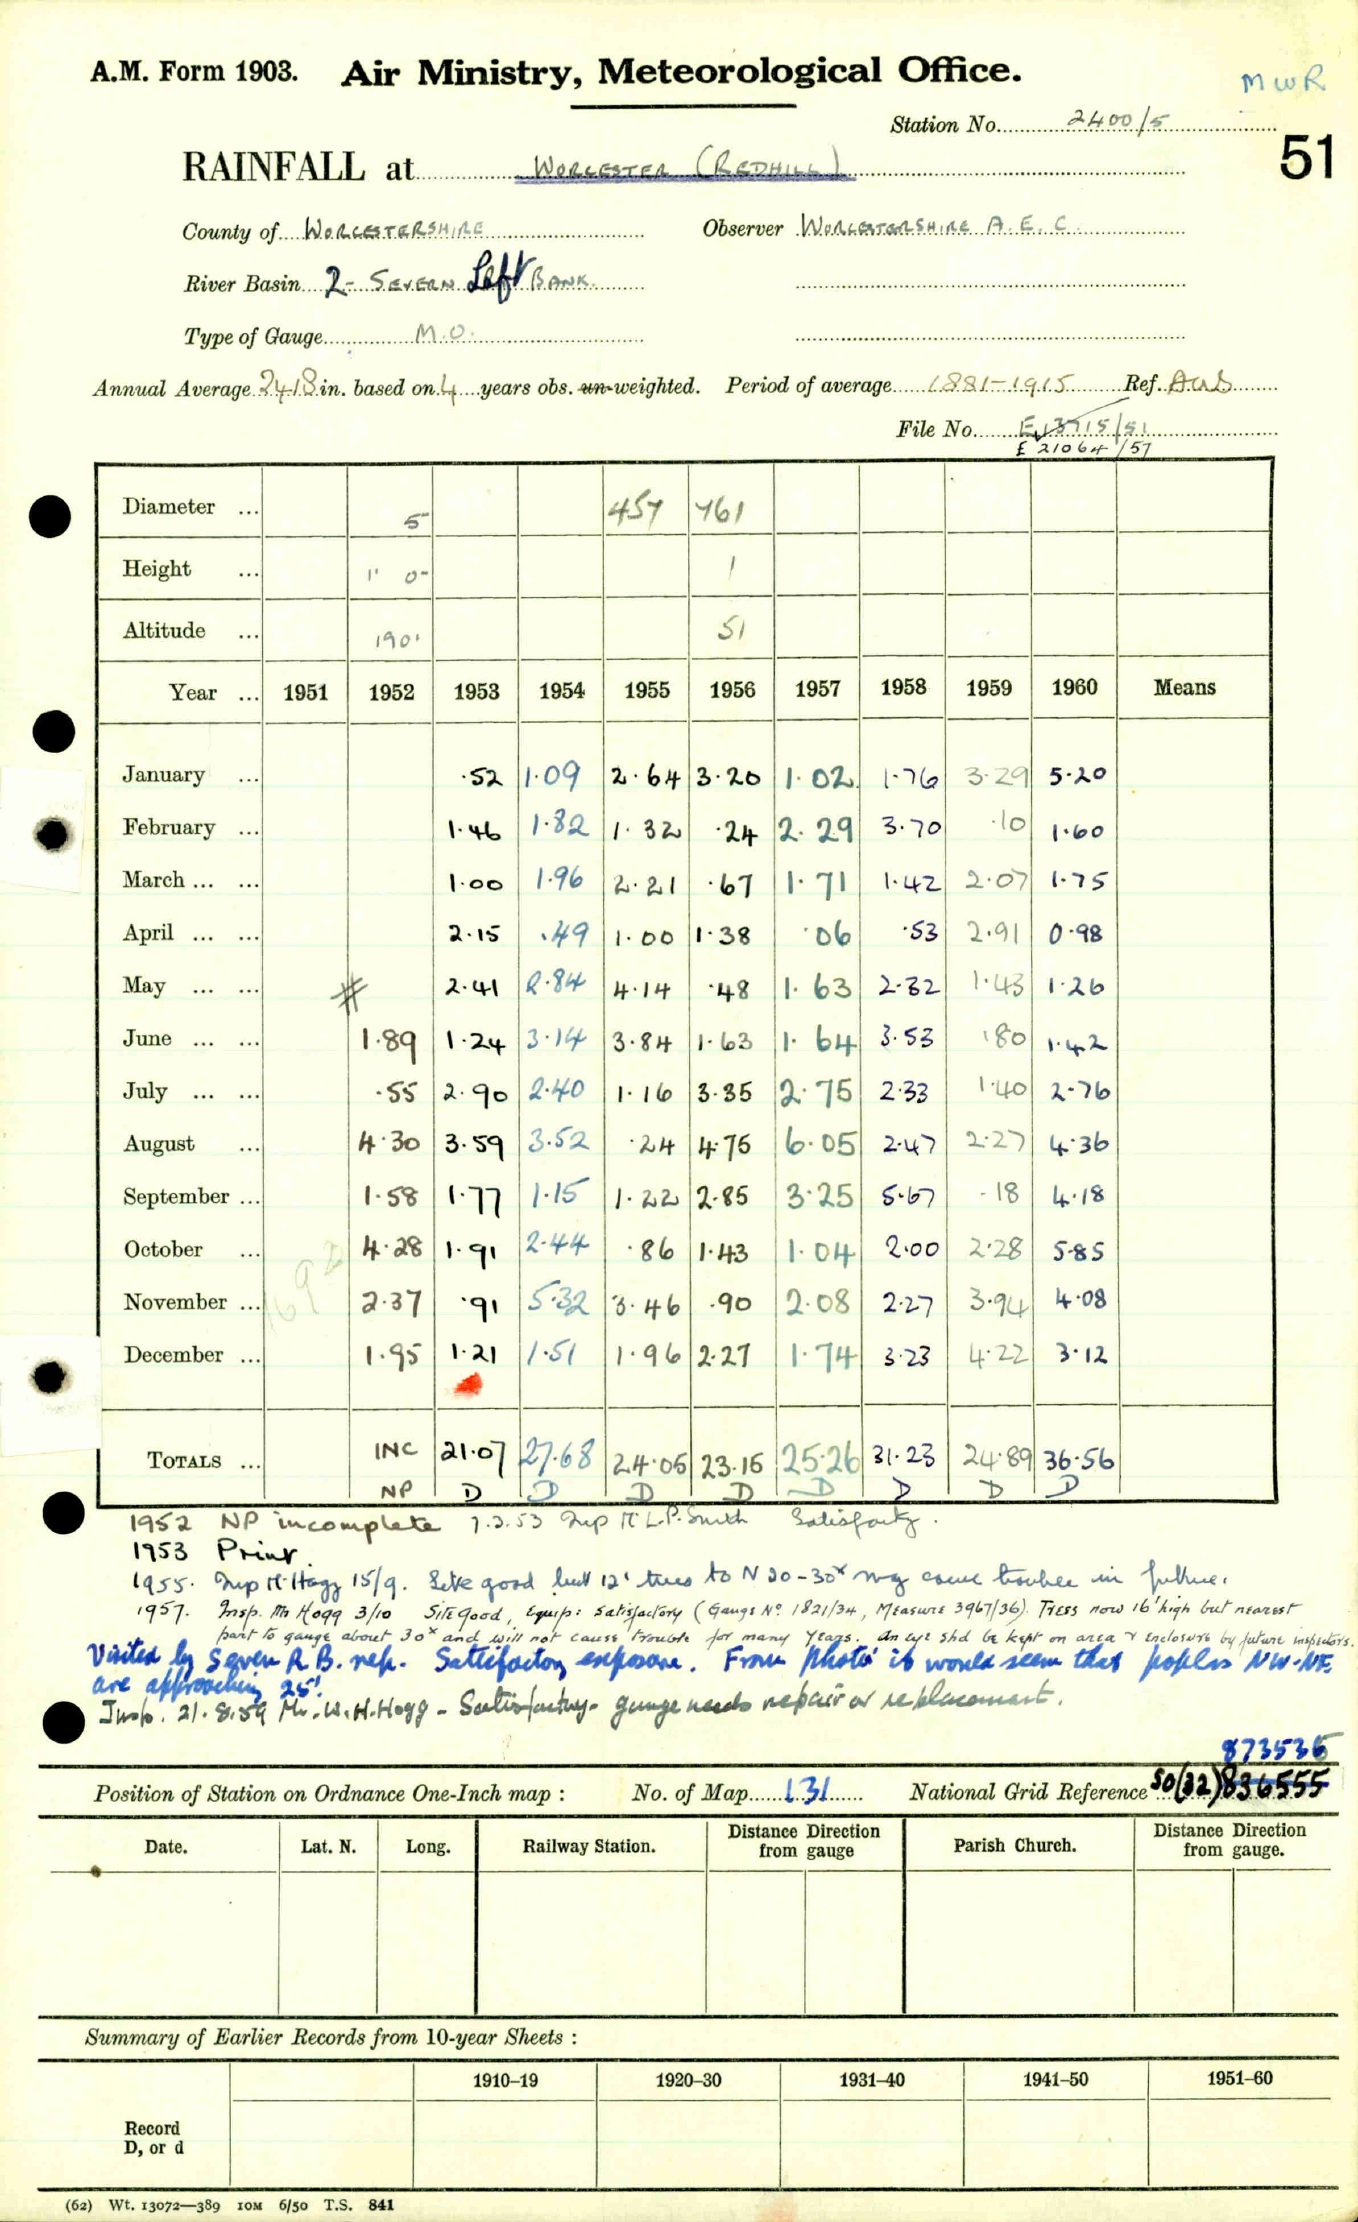 A.M. Form 1903. Air Ministry, Meteorological Office.
MWR
Station No. 2400/5
51
RAINFALL at WORCESTER (REDHILL)
County of WORCESTERSHIRE Observer WORCESTERSHIRE A.E.C.
River Basin 2- SEVERN Left BANK.
Type of Gauge M.O.
Annual Average 24.18 in. based on 4 years obs. un-weighted. Period of average 1881-1915 Ref.
File No. E 13715/51
E 21064/57
Diameter ... 5 457 761
Height ... 1' 0" 1
Altitude ... 190' 51
Year ... 1951 1952 1953 1954 1955 1956 1957 1958 1959 1960 Means
January ... .52 1.09 2.64 3.20 1.02 1.76 3.29 5.20
February ... 1.46 1.82 1.32 .24 2.29 3.70 .10 1.60
March ... ... 1.00 1.96 2.21 .67 1.71 1.42 2.07 1.75
April ... ... 2.15 .49 1.00 1.38 .06 .53 2.91 0.98
May ... ... # 2.41 2.84 4.14 .48 1.63 2.32 1.43 1.26
June ... ... 1.89 1.24 3.14 3.84 1.63 1.64 3.53 .80 1.42
July ... ... .55 2.90 2.40 1.16 3.35 2.75 2.33 1.40 2.76
August ... 4.30 3.59 3.52 .24 4.75 6.05 2.47 2.27 4.36
September ... 1.58 1.77 1.15 1.22 2.85 3.25 5.67 .18 4.18
October ... 4.28 1.91 2.44 .86 1.43 1.04 2.00 2.28 5.85
November ... 2.37 .91 5.32 3.46 .90 2.08 2.27 3.94 4.08
December ... 1.95 1.21 1.51 1.96 2.27 1.74 3.23 4.22 3.12
TOTALS ... INC 21.07 27.68 24.05 23.15 25.26 31.23 24.89 36.56
NP D D D D D D D D
1952 NP incomplete 7.2.53 Insp Mr L.P. Smith Satisfactory.
1953 Print.
1955. Insp Mr Hogg 15/9. Site good but 12' trees to N 20-30x may cause trouble in future.
1957. Insp. Mr Hogg 3/10 Site Good, Equip: satisfactory (Gauge No 1821/34, Measure 3967/36). Trees now 16' high but nearest
part to gauge about 30x and will not cause trouble for many years. An eye shd be kept on area & enclosure by future inspectors.
Visited by Severn R.B. rep. Satisfactory exposure. From photo it would seem that poplars NW-NE
are approaching 25'.
Insp. 21.8.59 Mr. W.H. Hogg - Satisfactory - gauge needs repair or replacement.
873536
Position of Station on Ordnance One-Inch map : No. of Map 131 National Grid Reference 50(32)836555
Date. Lat. N. Long. Railway Station. Distance Direction from gauge Parish Church. Distance Direction from gauge.
Summary of Earlier Records from 10-year Sheets :
1910–19 1920–30 1931–40 1941–50 1951–60
Record
D, or d
(62) Wt. 13072—389 10M 6/50 T.S. 841